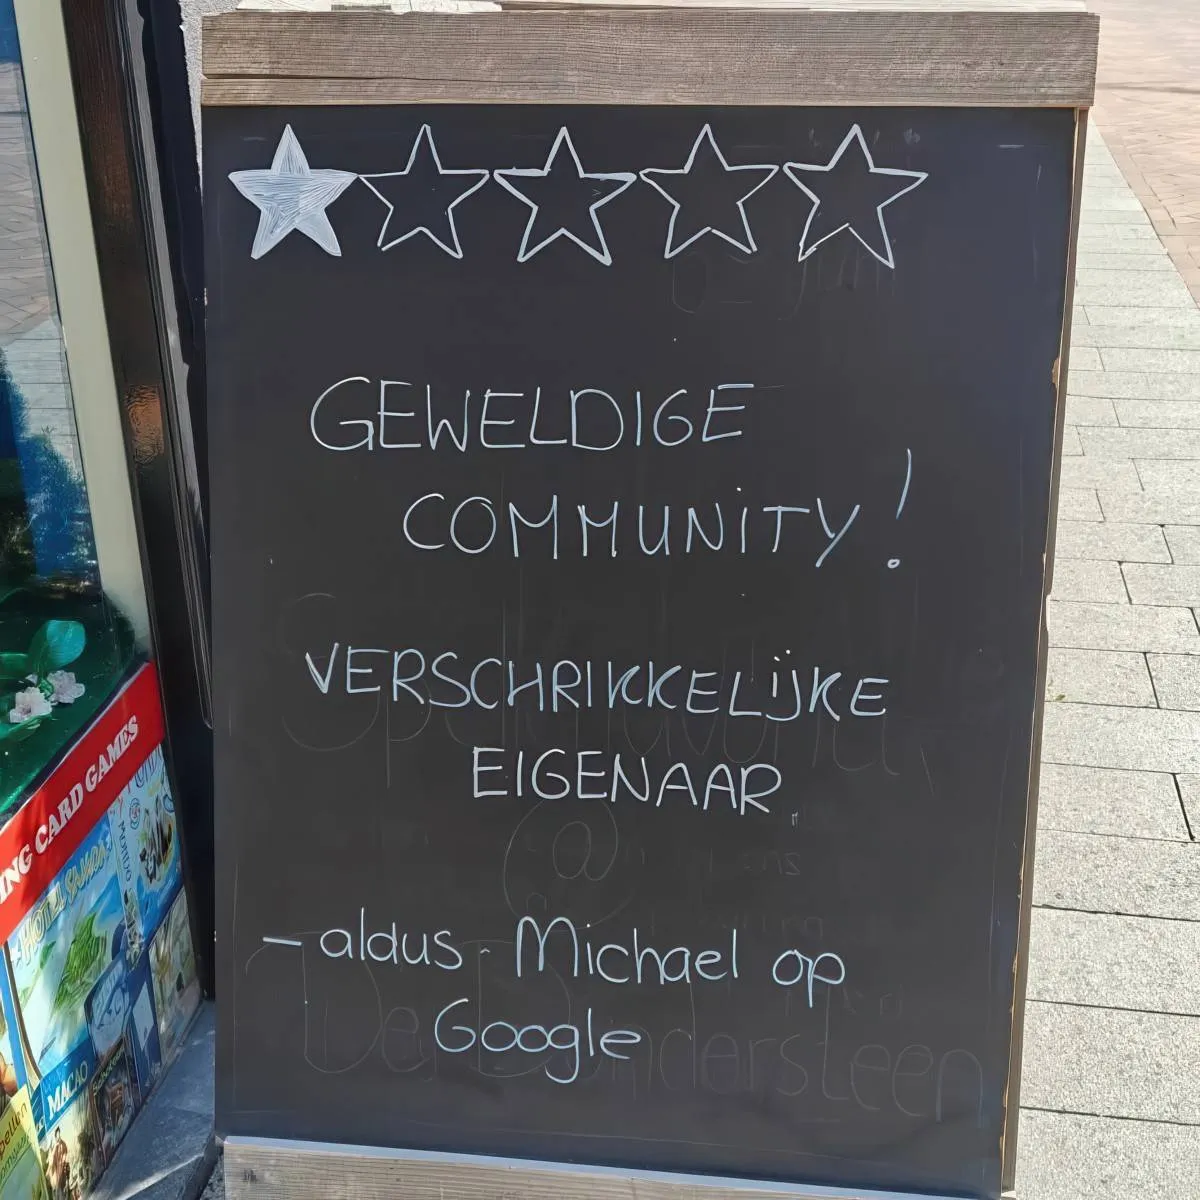 GEWELDIGE
COMMUNITY!
VERSCHRIKKELIJKE
EIGENAAR
- aldus Michael op
Google
ING CARD GAMES
HOTEL SAMOA
MACAO